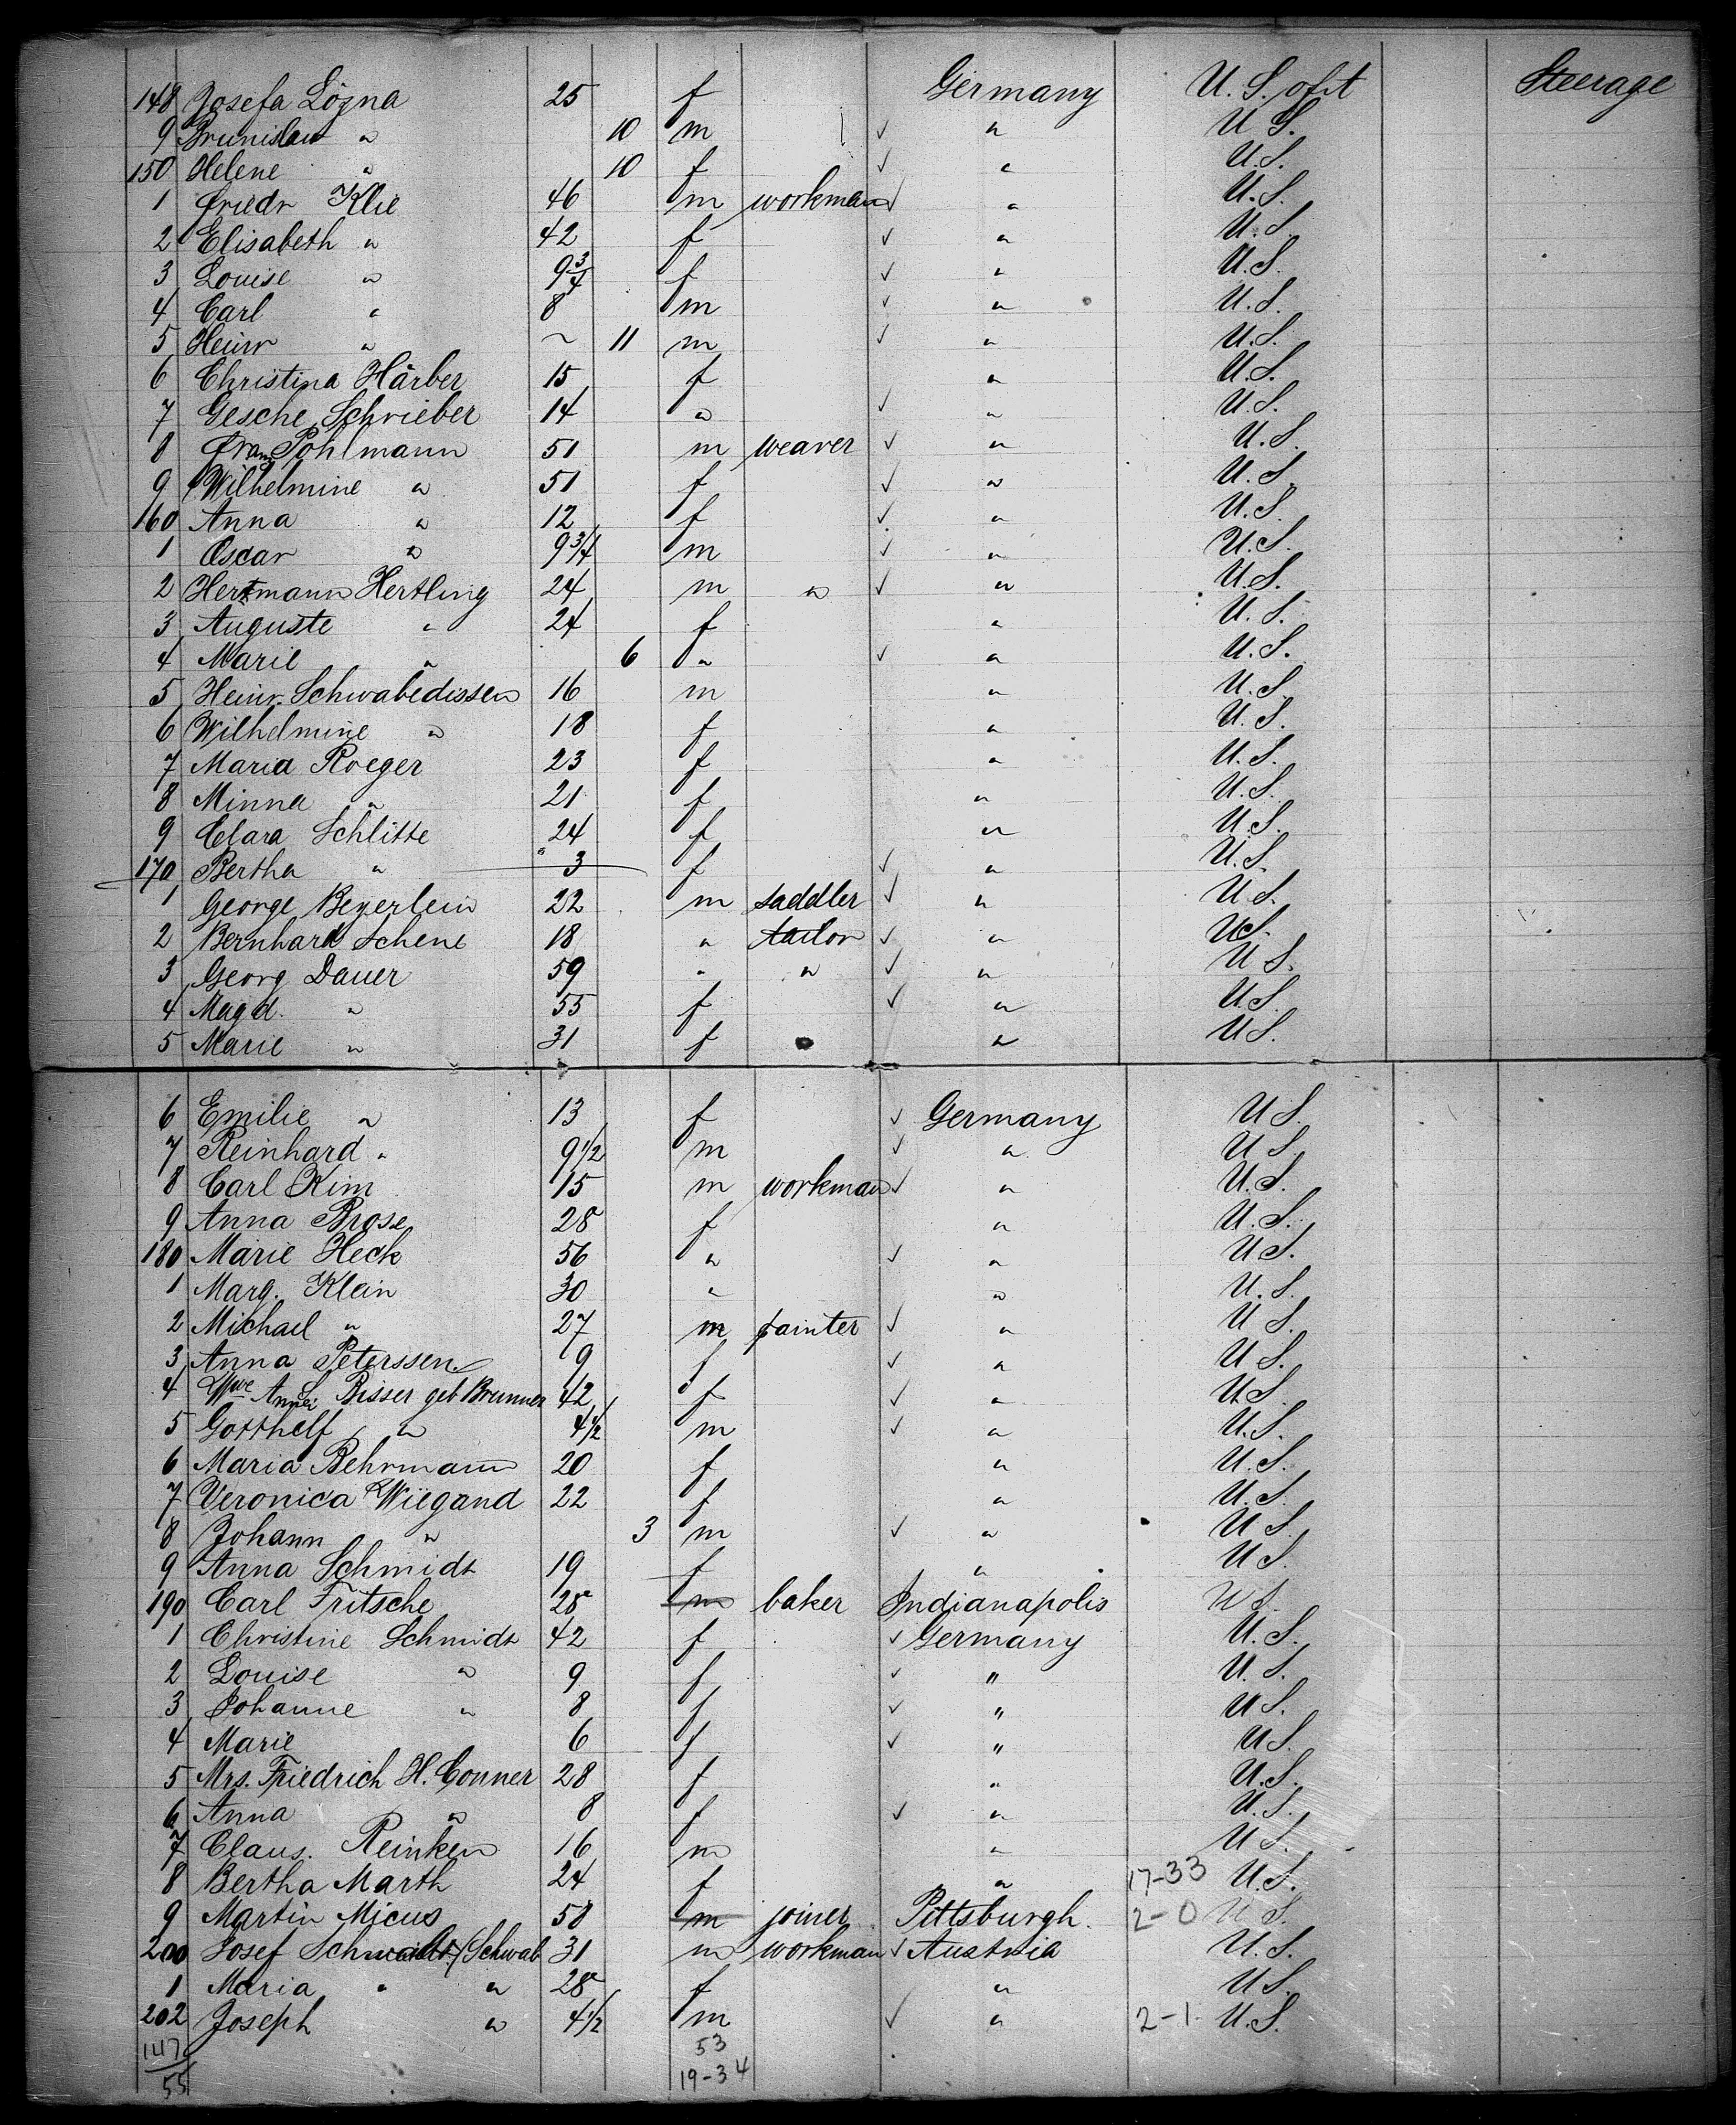 148 Josefa Lözna 25 f Germany U. S. of A Steerage
9 Brunislaw " 10 m " U S.
150 Helene " 10 f " U.S.
1 Friedr Klie 46 m workman " U.S.
2 Elisabeth " 42 f " U.S.
3 Louise " 9 3/4 f " U.S.
4 Carl " 8 m " U.S.
5 Heinr " ~ 11 m " U.S.
6 Christina Härber 15 f " U.S.
7 Gesche Schrieber 14 " " U.S.
8 Franz Pohlmann 51 m weaver " U.S.
9 Wilhelmine " 51 f " U.S.
160 Anna " 12 f " U.S.
1 Oscar " 9 3/4 m " U.S.
2 Hermann Hertling 24 m " " U.S.
3 Auguste " 24 f " U.S.
4 Marie " 6 " " U.S.
5 Heinr. Schwabedissen 16 m " U.S.
6 Wilhelmine " 18 f " U.S.
7 Maria Roeger 23 f " U.S.
8 Minna " 21 f " U.S.
9 Clara Schlitte 24 f " U.S.
170 Bertha " 3 f " U.S.
1 George Beyerlein 22 m saddler " U.S.
2 Bernhard Schene 18 " tailor " U.S.
3 Georg Dauer 59 " " " U.S.
4 Magd. " 55 f " U.S.
5 Marie " 31 f " U.S.
6 Emilie " 13 f Germany U S.
7 Reinhard " 9 1/2 m " U S.
8 Carl Kim 15 m workman " U.S.
9 Anna Brose 28 f " U.S.
180 Marie Heck 56 " " U.S.
1 Marg. Klein 30 " " U.S.
2 Michael " 27 m painter " U.S.
3 Anna Peterssen 9 f " U S.
4 Wwe Anna Bisser geb Brunner 42 f " U.S.
5 Gotthelf " 4 1/2 m " U.S.
6 Maria Behrmann 20 f " U.S.
7 Veronica Wiegand 22 f " U.S.
8 Johann " 3 m " U S.
9 Anna Schmidt 19 f " U S.
190 Carl Fritsche 28 m baker Indianapolis U S.
1 Christine Schmidt 42 f Germany U.S.
2 Louise " 9 f " U.S.
3 Johanne " 8 f " U S.
4 Marie 6 f " U S.
5 Mrs. Friedrich H. Conner 28 f " U.S.
6 Anna " 8 f " U.S.
7 Claus. Reinken 16 m " U S.
8 Bertha Marth 24 f " 17-33 U.S.
9 Martin Micus 58 m joiner Pittsburgh. 2-0 U S.
200 Josef (Schwab 31 m workman Austria U.S.
1 Maria " " 28 f " U S.
202 Joseph " 4 1/2 m " 2-1. U.S.
147 53
55 19-34